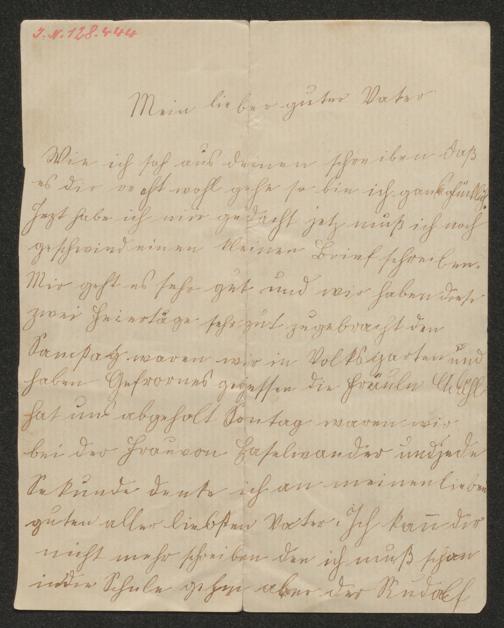 I.N.128.444
Mein lieber guter Vater
Wie ich sah aus deinen schreiben daß
es dir recht wohl gehe so bin ich ganz glücklich
Jezt habe ich mir gedacht jetz muß ich noch
geschwind einen kleinen Brief schreiben.
Mir geht es sehr gut und wir haben diese
zwei Feiertäge sehr gut zugebracht den
Samstag waren wir in Volksgarten und
haben Gefrornes gegessen die Fräuln
hat uns abgeholt Sontag waren wir
bei der Frau von Haselwander und jede
Sekunde denke ich an meinen lieben
guten aller liebsten Vater. Ich kann dir
nicht mehr schreiben den ich muß schon
in die Schule gehen aber der Rudolf